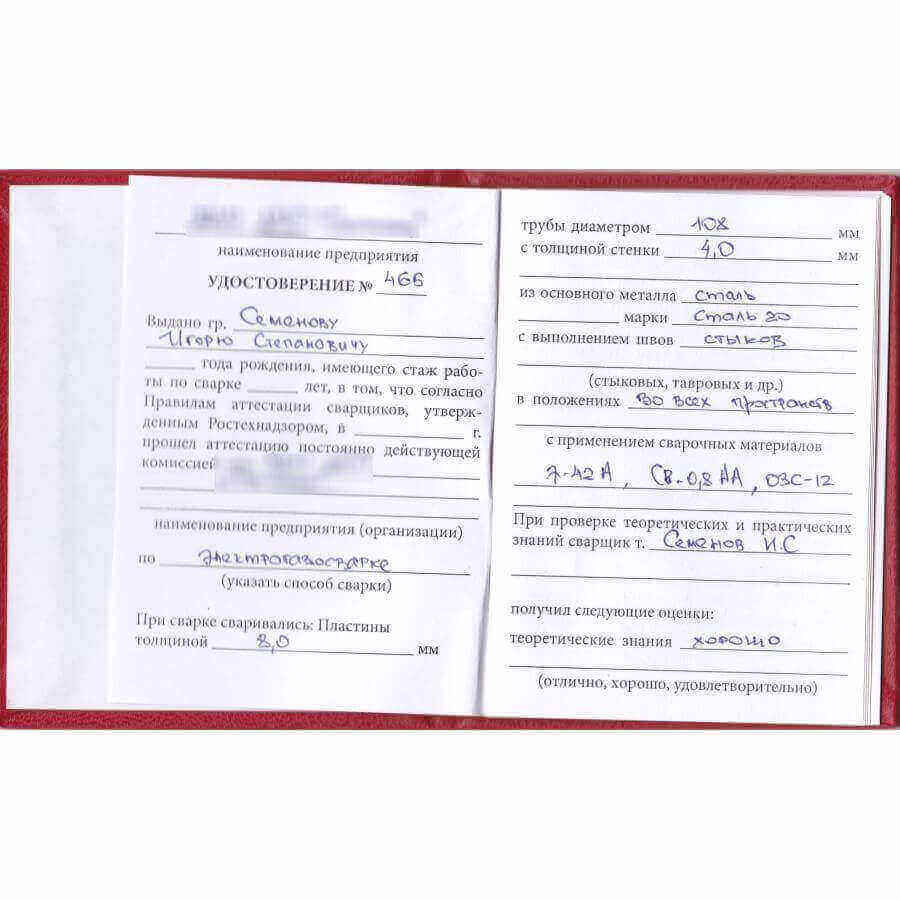 наименование предприятия
УДОСТОВЕРЕНИЕ № 466
Выдано гр. Семенову
Игорю Степановичу
года рождения, имеющего стаж рабо-
ты по сварке лет, в том, что согласно
Правилам аттестации сварщиков, утверж-
денным Ростехнадзором, в г.
прошел аттестацию постоянно действующей
комиссией
наименование предприятия (организации)
по электрогазосварке
(указать способ сварки)
При сварке сваривались: Пластины
толщиной 8,0 мм
трубы диаметром 108 мм
с толщиной стенки 4,0 мм
из основного металла сталь
марки Сталь 20
с выполнением швов стыков
(стыковых, тавровых и др.)
в положениях Во всех пространств
с применением сварочных материалов
Э-42А, Св-0,8 АА, ОЗС-12
При проверке теоретических и практических
знаний сварщик т. Семенов И.С
получил следующие оценки:
теоретические знания хорошо
(отлично, хорошо, удовлетворительно)